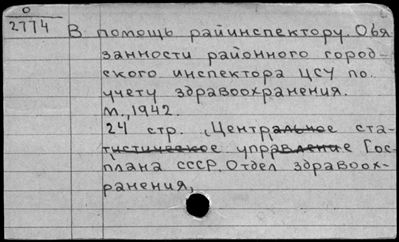 0
2774
В помощь райинспектору. Обя
занности районного город-
ского инспектора ЦСУ по
учету здравоохранения.
М., 1942.
24 стр. (Центральное ста-
тистическое управление Гос-
плана СССР. Отдел здравоох-
ранения,